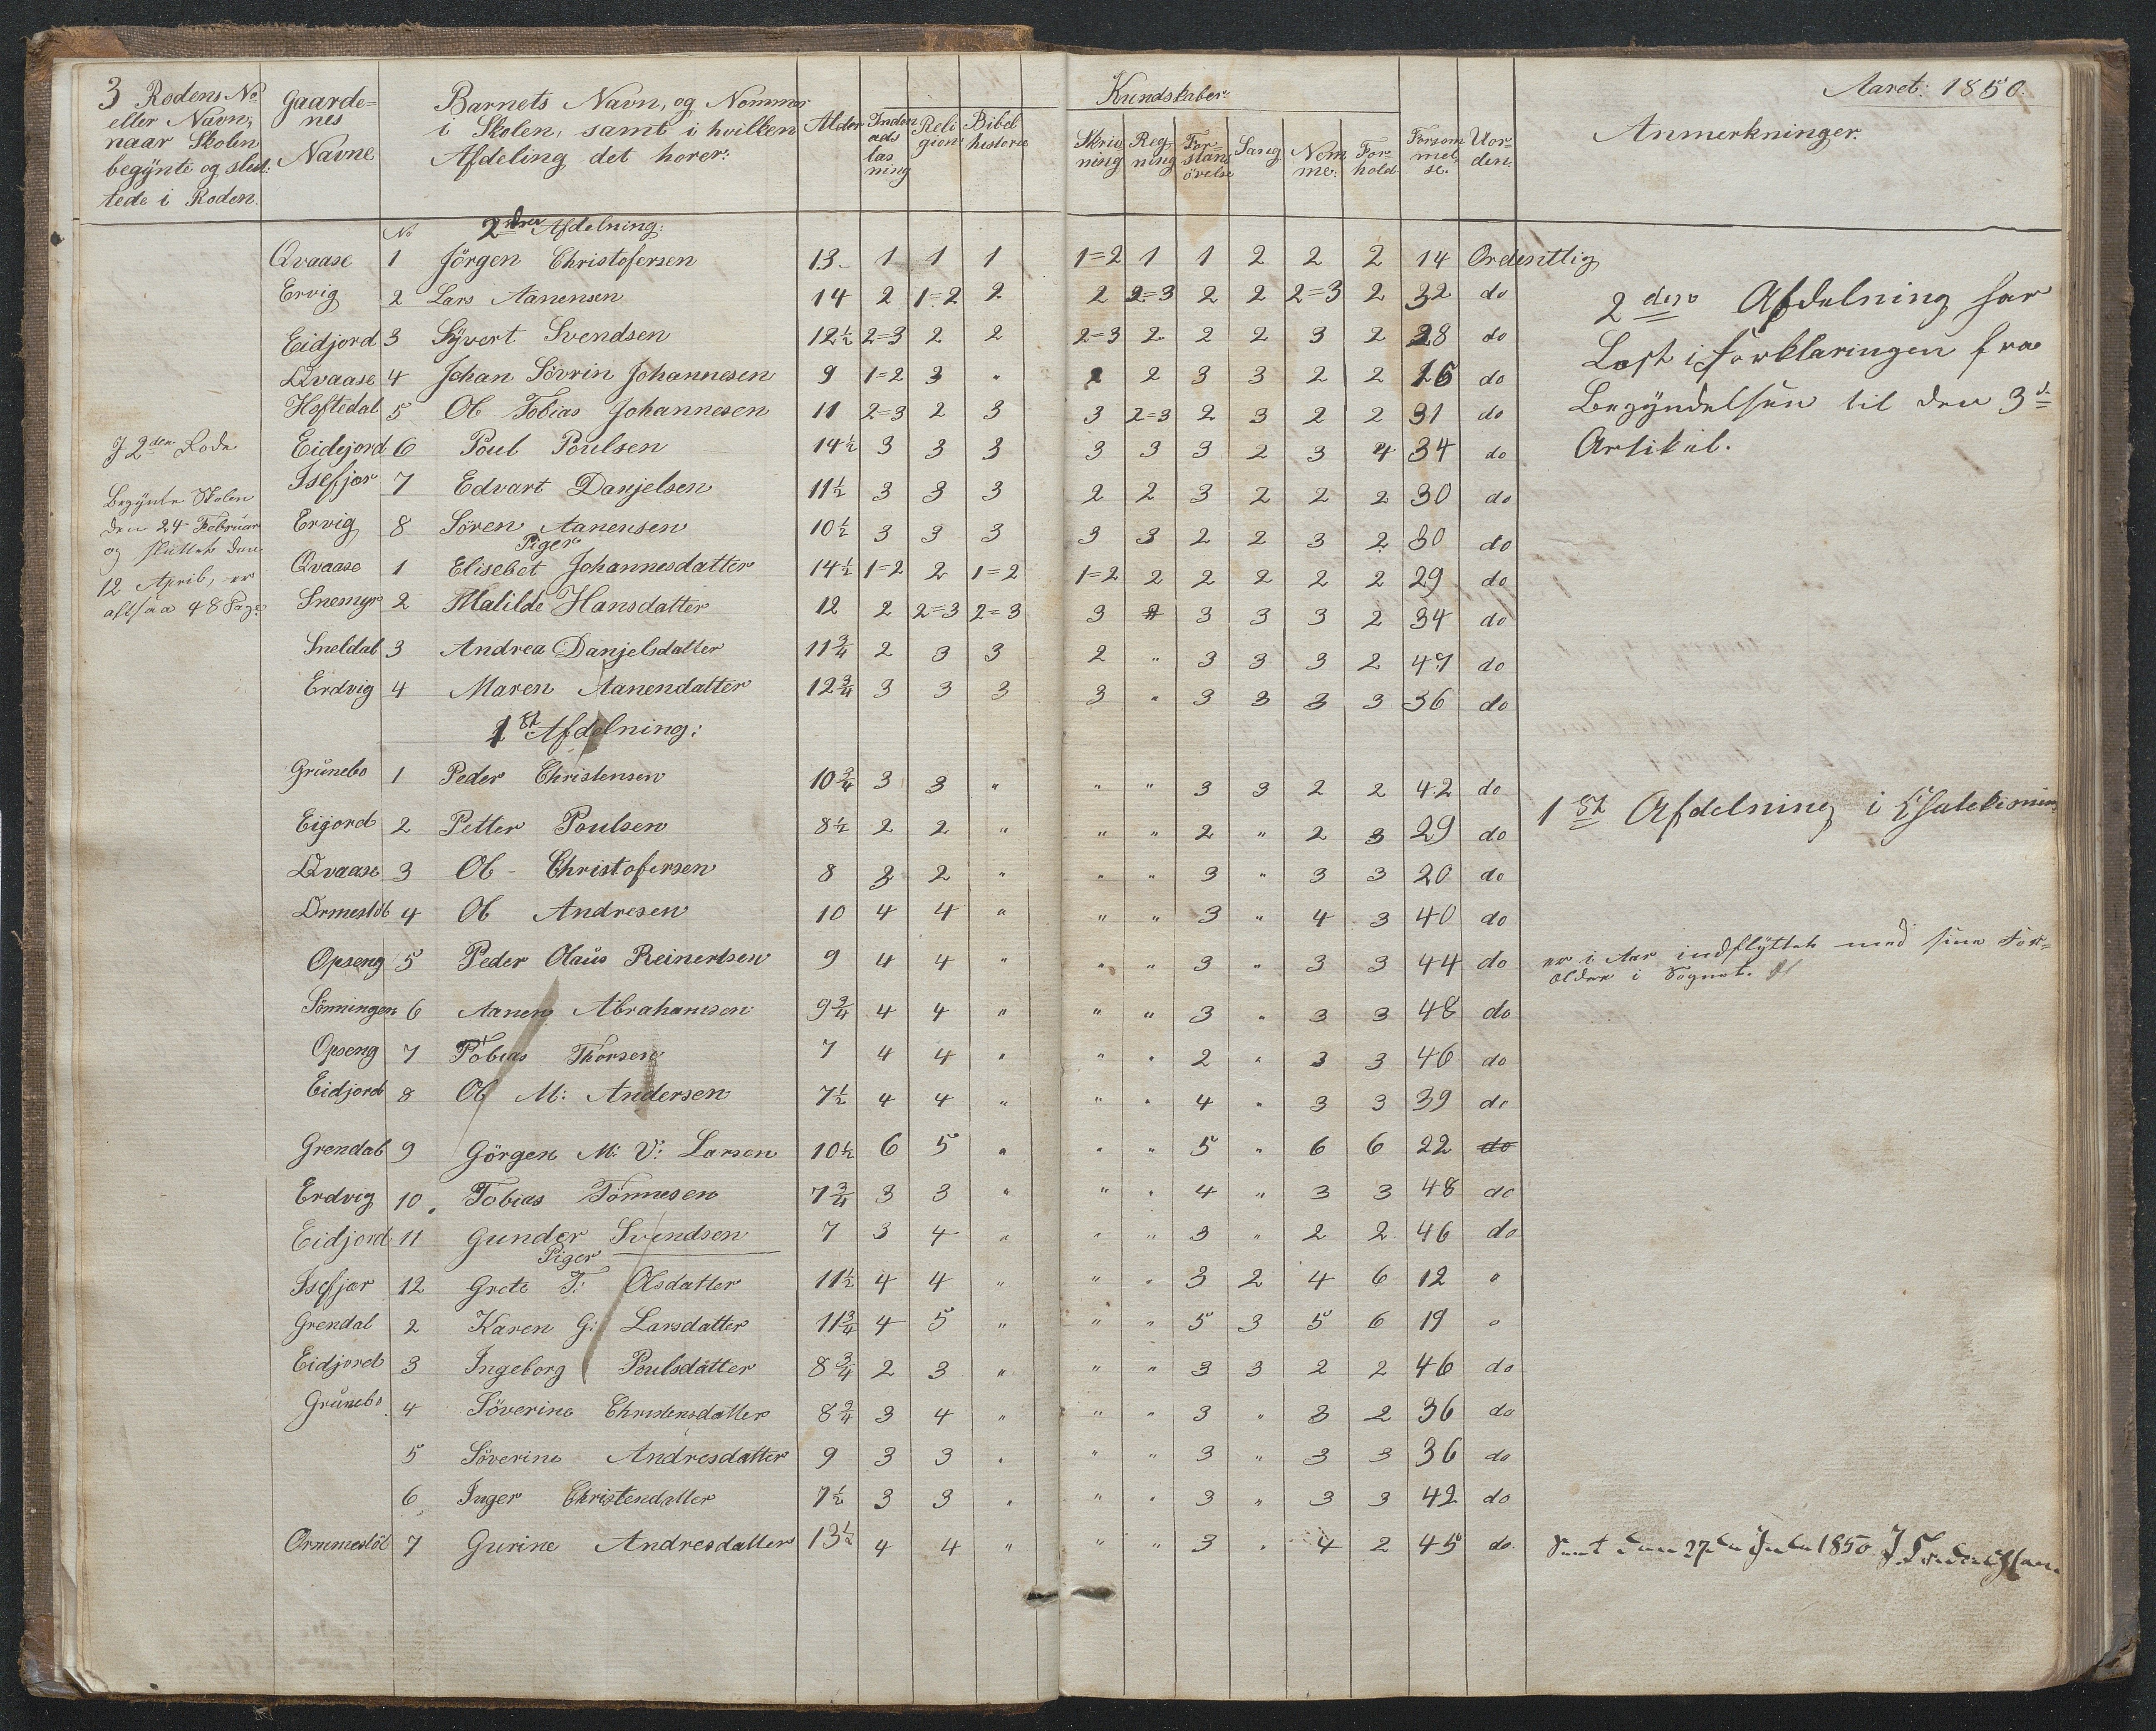 3 Rodens No eller Navn, naar Skolen begynte og slut= tede i Roden.
Gaarde= nes Navne
Barnets Navn, og Nommer i Skolen, samt i hvilken Afdeling det horer:
Alder
Inden ads læs ning
Reli gion
Bibel historie
Kundskaber
Skriv ning
Reg ning
For= stans övelse
Sang
Nem me:
For= hold
Forsom mel se.
Uor= den:
Aaret: 1850.
Anmerkninger.
No 2den Afdelning:
Qvaase 1 Jörgen Christofersen 13 1 1 1 1=2 1 1 2 2 2 14 Ordentlig
Ervig 2 Lars Aanensen 14 2 1=2 2 2 2=3 2 2 2=3 2 32 do
Eidjord 3 Syvert Svendsen 12½ 2=3 2 2 2=3 2 2 2 3 2 28 do
Qvaase 4 Johan Sövrin Johannesen 9 1=2 3 " 2 2 3 3 2 2 16 do
Hoftedal 5 Ol Tobias Johannesen 11 2=3 2 3 3 2=3 2 3 2 2 31 do
Eidejord 6 Poul Poulsen 14½ 3 3 3 3 3 3 2 3 4 34 do
Isefjær 7 Edvart Danjelsen 11½ 3 3 3 2 2 3 2 2 2 30 do
Ervig 8 Sören Aanensen 10½ 3 3 3 3 3 2 2 3 2 30 do
Piger
Qvaase 1 Elisebet Johannesdatter 14½ 1=2 2 1=2 1=2 2 2 2 2 2 29 do
Snemyr 2 Matilde Hansdatter 12 2 2=3 2=3 3 " 3 3 3 2 34 do
Sneldal 3 Andrea Danjelsdatter 11¾ 2 3 3 2 " 3 3 3 2 47 do
Erdvig 4 Maren Aanendatter 12¾ 3 3 3 3 " 3 3 3 3 36 do
J 2den Rode
Begynte Skolen
den 24 Februar
og sluttet den
12 April, er
altsaa 48 Dage
2den Afdelning har
Læst i Forklaringen fra
Begyndelsen til den 3d
Artikel.
1st Afdelning:
Grünebo 1 Peder Christensen 10¾ 3 3 " " " 3 3 2 2 42 do
Eigord 2 Petter Poulsen 8½ 2 2 " " " 2 " 2 3 29 do
Qvaase 3 Ol Christofersen 8 3 2 " " " 3 " 3 3 20 do
Ormeslöt 4 Ol Andresen 10 4 4 " " " 3 " 4 3 40 do
Opseng 5 Peder Olaüs Reinertsen 9 4 4 " " " 3 " 3 3 44 do
Sönningen 6 Aanen Abrahamsen 9¾ 4 4 " " " 3 " 3 3 48 do
Opseng 7 Tobias Thorsen 7 4 4 " " " 2 " 3 3 46 do
Eidjord 8 Ol M: Andersen 7½ 4 4 " " " 4 " 3 3 39 do
Grendal 9 Görgen M: V: Larsen 10½ 6 5 " " " 5 " 6 6 22 do
Erdvig 10 Tobias Tönnesen 7¾ 3 3 " " " 4 " 3 3 48 do
Eidjord 11 Gunder Svendsen 7 3 4 " " " 3 " 2 2 46 do
Piger
Isefjær 12 Grete T: Olsdatter 11½ 4 4 " " " 3 2 4 6 12 "
Grendal 2 Karen G: Larsdatter 11¾ 4 5 " " " 5 3 5 6 19 "
Eidjord 3 Ingeborg Poulsdatter 8¾ 2 3 " " " 3 3 2 2 46 do
Grünebo 4 Söverine Christensdatter 8¾ 3 4 " " " 3 " 3 2 36 do
5 Söverine Andresdatter 9 3 3 " " " 3 " 3 3 36 do
6 Inger Christendatter 7½ 3 3 " " " 3 " 3 3 42 do
Ormmeslöt 7 Gurine Andresdatter 13½ 4 4 " " " 3 " 4 2 45 do
1st Afdelning i Chatekismen
er i Aar indflyttet med sine For=
ældre i Sognet.
Seet den 27de 1850